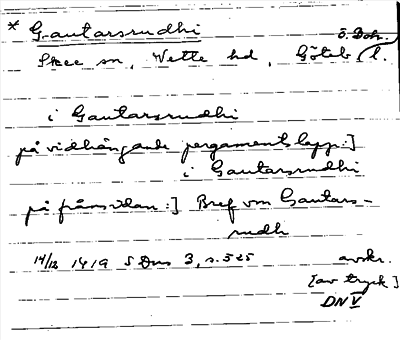 * Gautarsrudhi ö. Boh.
Skee sn, Vette hd, Göteb l.
i Gautarsrudhi
på vidhängande pergamentslapp:]
i Gautarsrudhi
på frånsidan:] Bref vm Gautars-
rudh
14/12 1419 SDns 3, s. 525 avskr.
[av tryck]
DN V